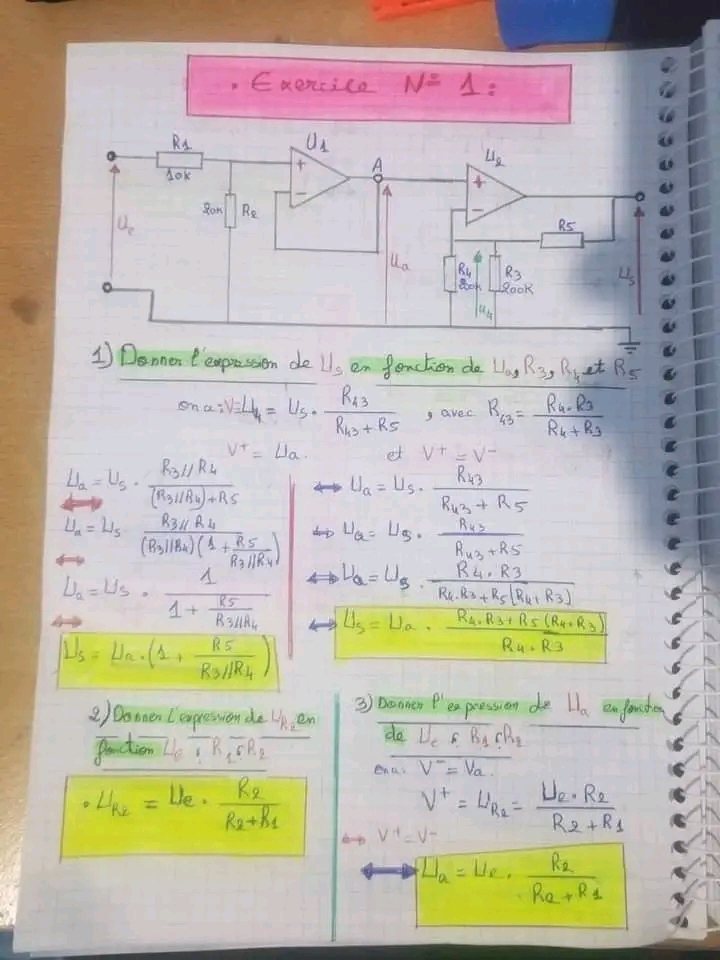 . Exercice N° 1 :
R1
10K
U1
A
U2
20K R2
Ue
Ua
R5
R4
200K
R3
200K
U4
Us
1) Donner l'expression de Us en fonction de Ua, R3, R4 et R5
on a : V⁻ = U4 = Us . R43 / (R43 + R5) , avec R43 = R4 . R3 / (R4 + R3)
V⁺ = Ua . et V⁺ = V⁻
Ua = Us . R3//R4 / ((R3//R4) + R5)
⇔ Ua = Us . R3//R4 / ((R3//R4)(1 + R5 / R3//R4))
⇔ Ua = Us . 1 / (1 + R5 / R3//R4)
⇔ Us = Ua . (1 + R5 / R3//R4)
⇔ Ua = Us . R43 / (R43 + R5)
⇔ Ua = Us . R43 / (R43 + R5)
⇔ Ua = Us . R4 . R3 / (R4 . R3 + R5 (R4 + R3))
⇔ Us = Ua . (R4 . R3 + R5 (R4 + R3)) / (R4 . R3)
2) Donner l'expression de UR2 en
fonction Ue , R1 , R2
. UR2 = Ue . R2 / (R2 + R1)
3) Donner l'expression de Ua en fonction
de Ue , R1 , R2
on a : V⁻ = Va .
V⁺ = UR2 = Ue . R2 / (R2 + R1)
⇔ V⁺ = V⁻
⇔ Ua = Ue . R2 / (R2 + R1)